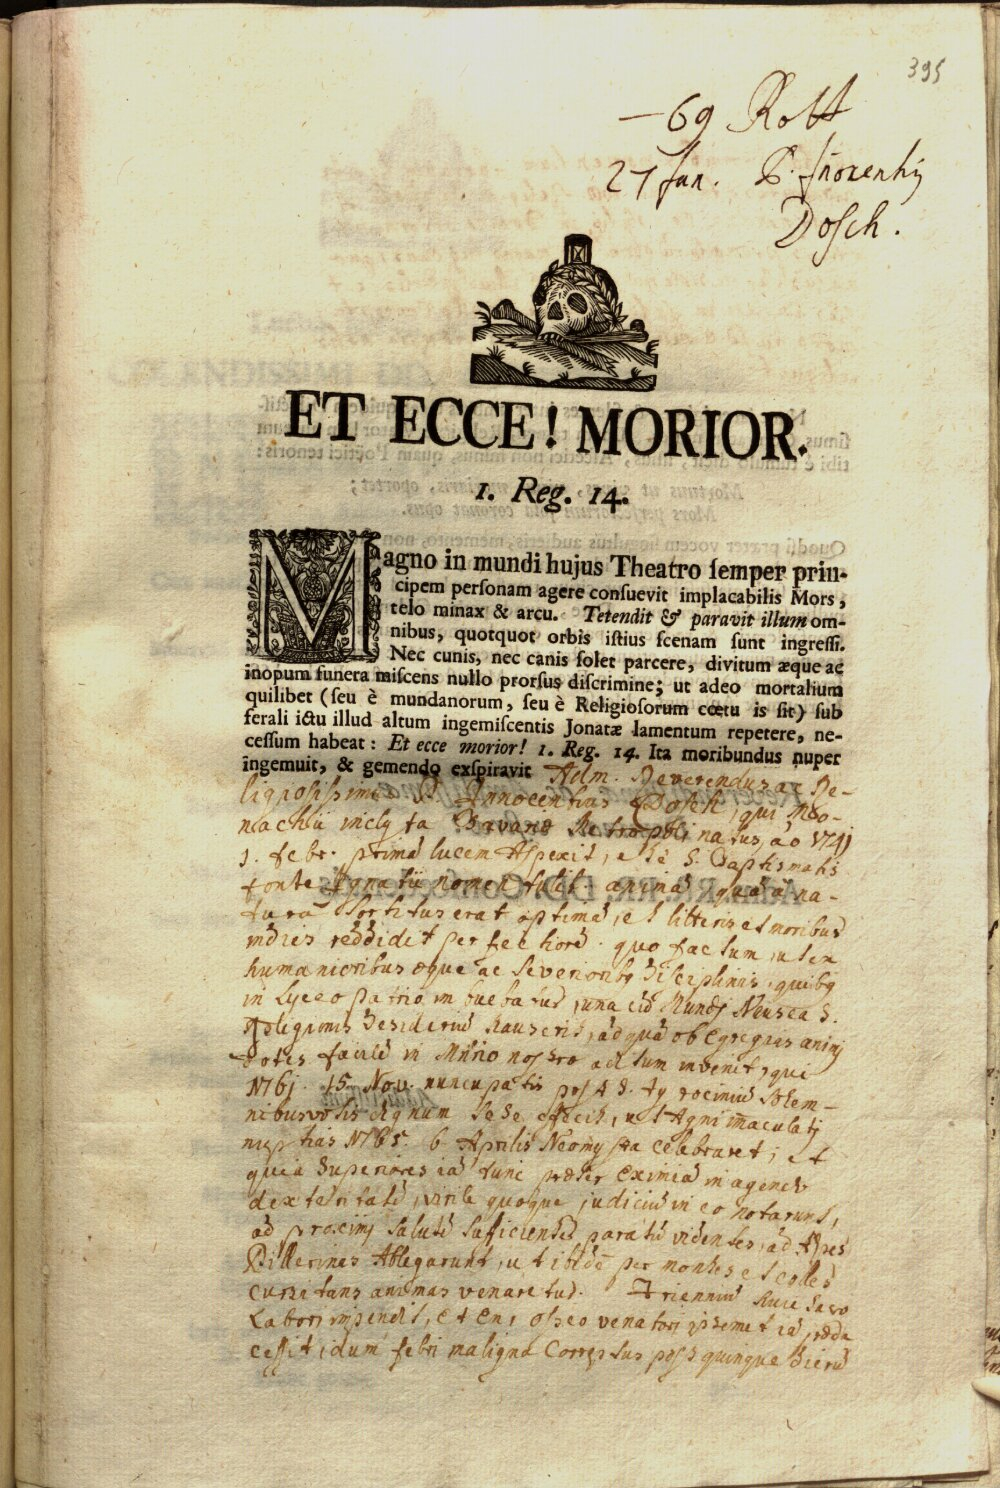 395
— 69 Rott
27 Jan. P. Inocentij
Dosch.
ET ECCE! MORIOR.
1. Reg. 14.
Magno in mundi hujus Theatro ſemper prin-
cipem perſonam agere conſuevit implacabilis Mors,
telo minax & arcu. Tetendit & paravit illum om-
nibus, quotquot orbis iſtius ſcenam ſunt ingreſſi.
Nec cunis, nec canis ſolet parcere, divitum æque ac
inopum funera miſcens nullo prorſus diſcrimine; ut adeo mortalium
quilibet (ſeu è mundanorum, ſeu è Religioſorum cœtu is ſit) ſub
ferali ictu illud altum ingemiſcentis Jonatæ lamentum repetere, ne-
ceſſum habeat: Et ecce morior! 1. Reg. 14. Ita moribundus nuper
ingemuit, & gemendo exſpiravit Adm. Reverendus ac Re-
ligiosissimus P. Innocentius Dosch, qui Mo-
nachii inclyta Bavariæ Metropoli natus, ao 1741
1. febr. primā lucem Aspexit, e Sā S. Baptismatis
fonte Ignatii nomen tulit. animā, quā à na-
turā Sortitus erat optimā, et litteris et moribus
indies reddidit perfectiorē. quo factum, ut ex
humanioribus æque ac Severioribq Disciplinis, quibq
in Lyceo patrio inbuebatur, una cū Mundi Nausea S.
Religionis Desideriū hauserit, ad quā ob egregias animi
dotes facilē in Mñrio nostro aditum invenit, qui
1761. 15. Nov. nuncupatis post S. tyrociniū Solem-
nibus votis dignum Se Se effecit, ut Agni im̄aculati
nuptias 1765. 6 Aprilis Neomysta celebraret; et
quia Superiores iā tunc præter eximiā in agendo
dexteritatē, virile quoque judiciū in eo notarunt,
ad proximi Salutē Sufficienter paratū videntes, ad Alpes
Rillerines Ablegarunt, ut ibidē per montes et colles
cursitans animas venaretur. Trienniū huic Sacro
Labori impendit, et en, ipseo venatori ipsemet iā præda
cessit, dum febri maligna Correptus post quinque dierū